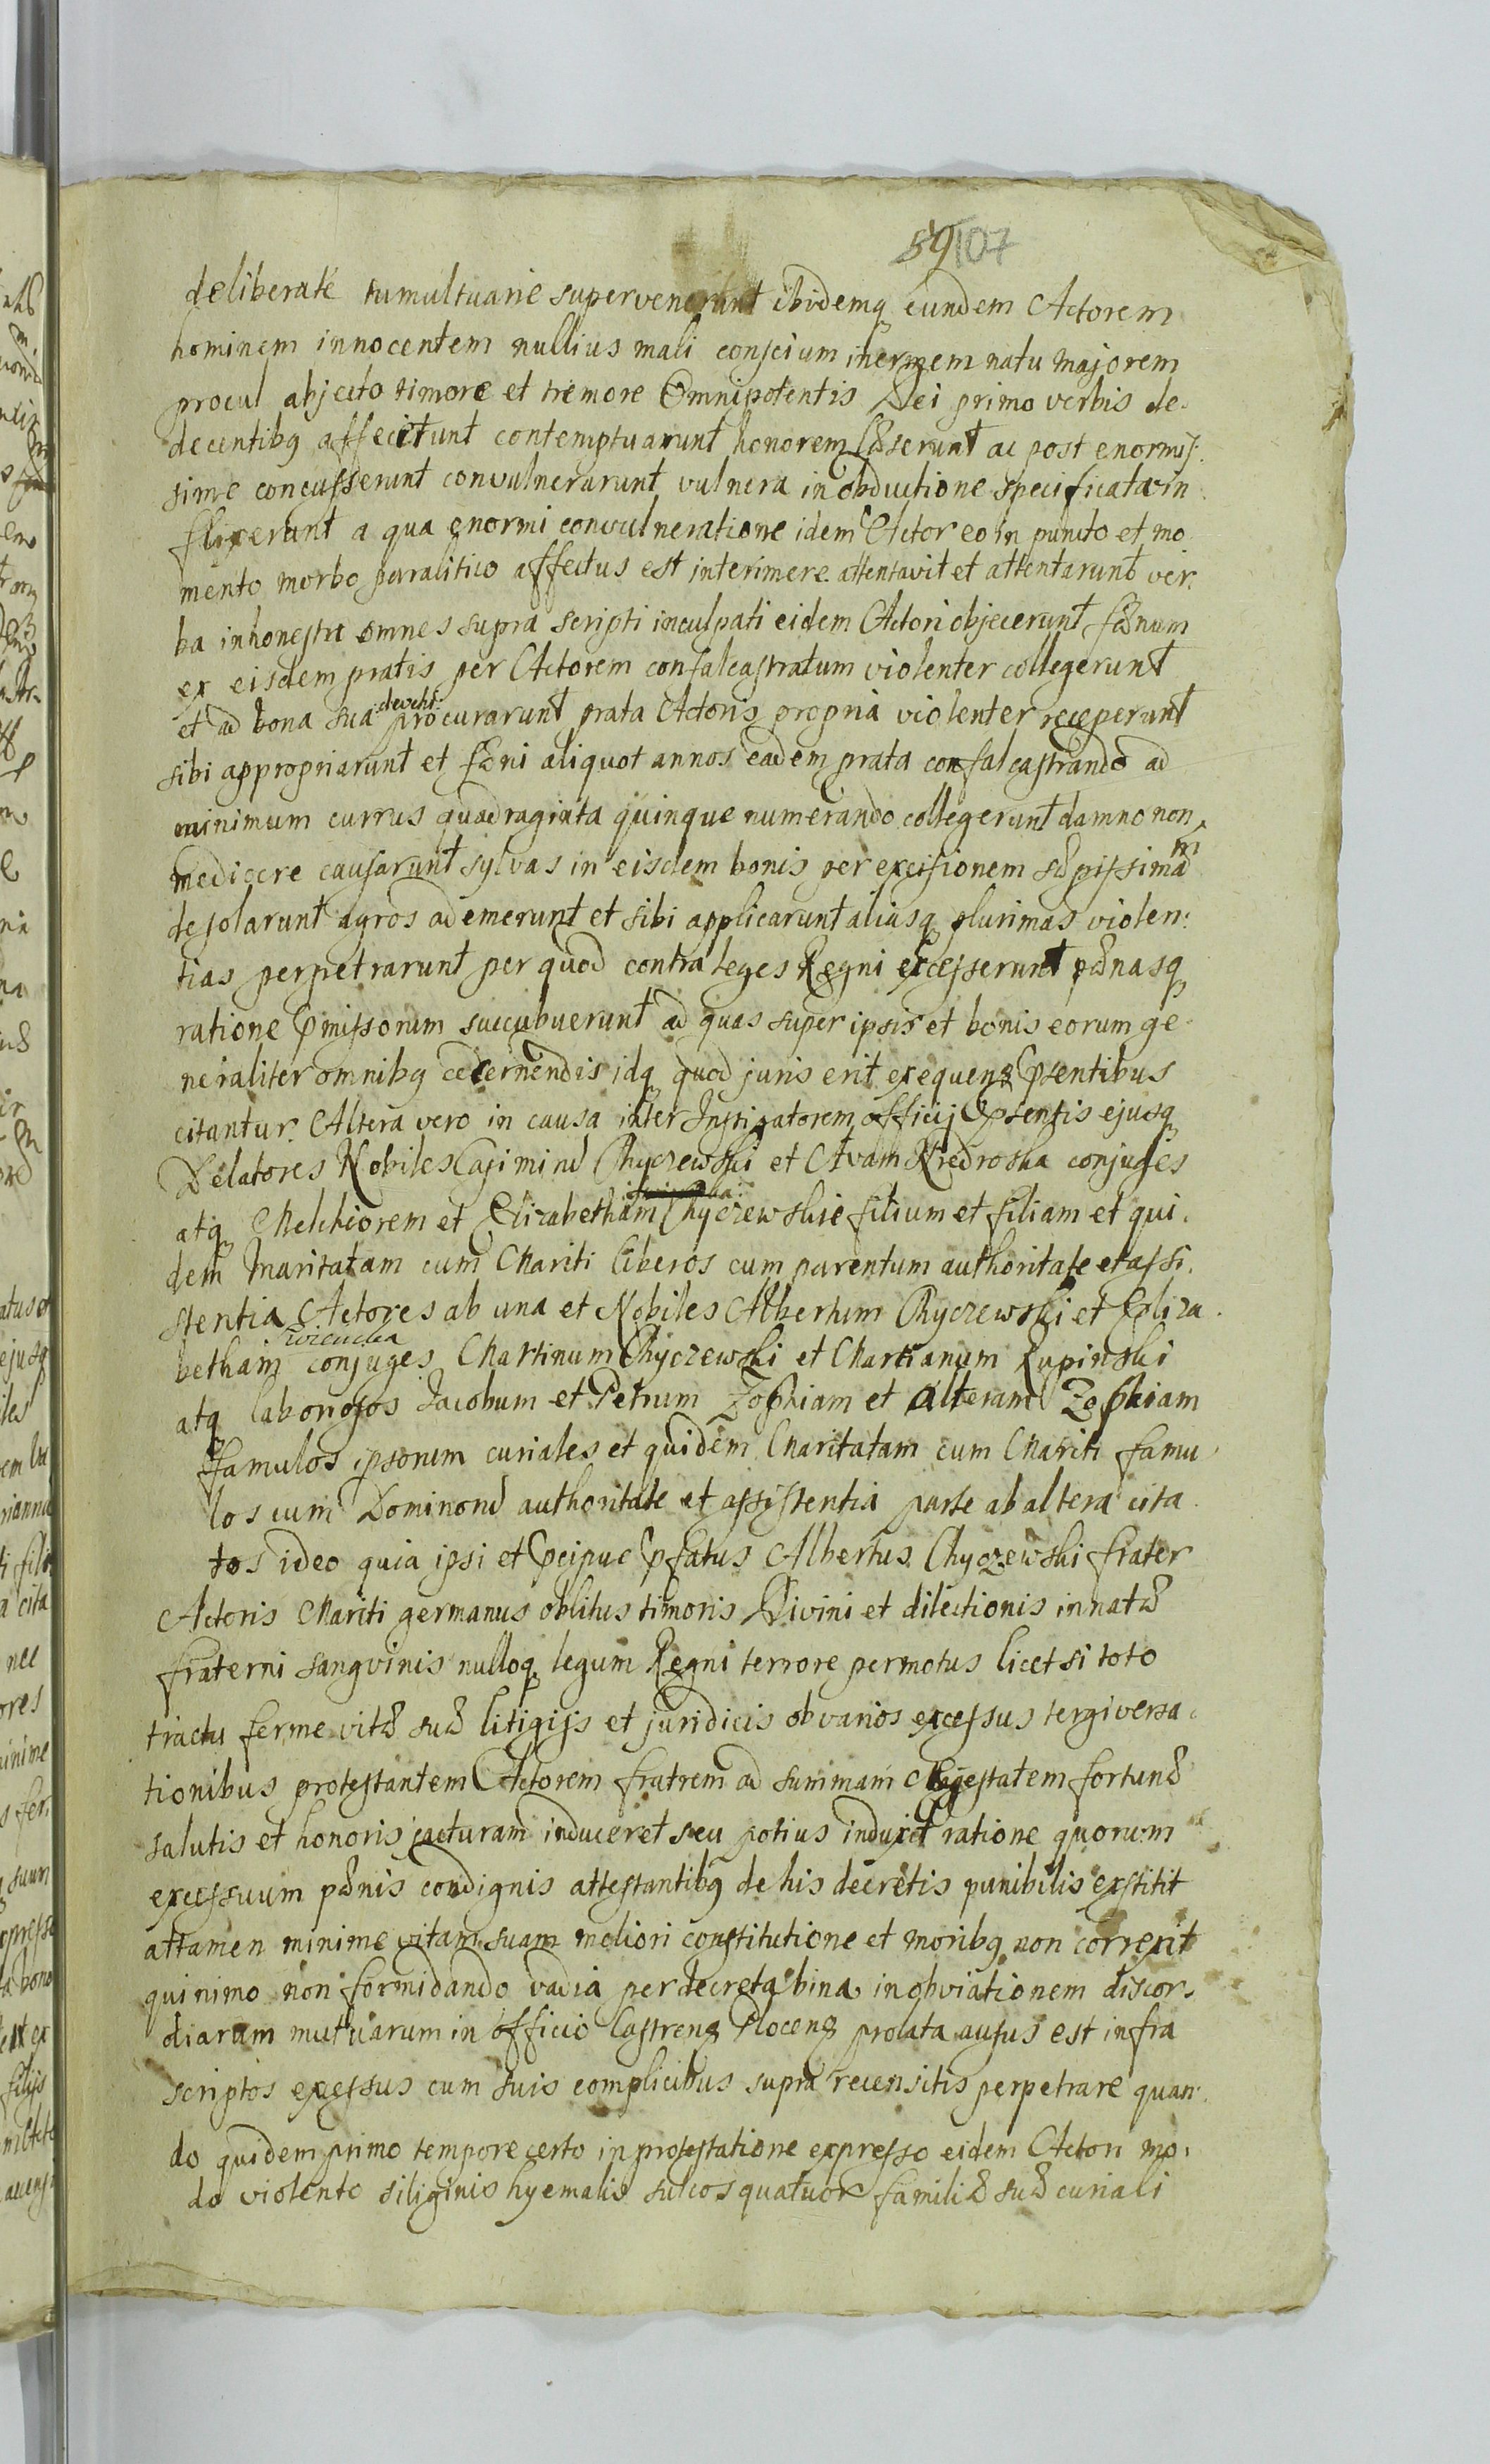 59 107
deliberaté tumultuarie supervenerunt ibidemq eundem Actorem
hominem innocentem nullius mali conscium inermem natu majorem
procul abjecto timore et tremore Omnipotentis Dei primo verbis de-
decentibq affecerunt contemptuarunt honorem læserunt ac post enormis-
sime concusserunt convulnerarunt vulnera in obductione specificata in
flixerunt a qua enormi convulneratione idem Actor eo in puncto et mo-
mento morbo paralitico affectus est interimere attentavit et attentarunt ver-
ba inhonesta omnes supra scripti inculpati eidem Actori objecerunt fænum
ex eisdem pratis per Actorem confalcastratum violenter collegerunt
et ad bona sua devehi procurarunt prata Actoris propria violenter receperunt
sibi appropriarunt et fæni aliquot annos eadem prata confalcastrando ad
minimum currus quadraginta quinque numerando collegerunt damno non
mediocre causarunt sylvas in eisdem bonis per excisionem sæpissimam
desolarunt agros ademerunt et sibi applicarunt aliasq plurimas violen-
tias perpetrarunt per quod contra leges Regni excesserunt pænasq
ratione pmissorum succubuerunt ad quas super ipsis et bonis eorum ge-
neraliter omnibq decernendis idq quod juris erit exequens psentibus
citantur. Altera vero in causa inter Instigatorem officij psentis ejusq
Delatores Nobiles Casimirum Chyczewski et Evam Kredroska conjuges
atq Melchiorem et Elizabetham Chyczewskie filium et filiam et qui-
dem Maritatam cum Mariti liberos cum parentum authoritate et assi-
stentia Actores ab una et Nobiles Albertum Chyczewski et Eliza-
betham conjuges Martinum Chyczewski et Marcianum Rupinski
atq laboriosos Jacobum et Petrum Zophiam et alteram Zophiam
famulos ipsorum curiales et quidem Maritatam cum Mariti famu-
los cum Dominorum authoritate et assistentia parte ab altera cita-
tos ideo quia ipsi et pcipue pfatus Albertus Chyczewski frater
Actoris Mariti germanus oblitus timoris Divini et dilectionis innatæ
fraterni sangvinis nulloq legum Regni terrore permotus licet si toto
tractu ferme vitæ suæ litigijs et juridicis ob varios excessus tergiversa-
tionibus protestantem Actorem fratrem ad summam egestatem fortunæ
salutis et honoris jacturam induceret seu potius induxit ratione quorum
excessuum pænis condignis attestantibq de his decretis punibilis exstitit
attamen minime vitam suam meliori constitutione et moribq non correxit
quinimo non formidando vadia per decreta bina in obviationem discor-
diarum mutuarum in officio Castrens Plocens prolata ausus est infra
scriptos excessus cum suis complicibus supra recensitis perpetrare quan-
do quidem primo tempore certo in protestatione expresso eidem Actori mo-
do violento siliginis hyemalis sulcos quatuor familiæ suæ curiali